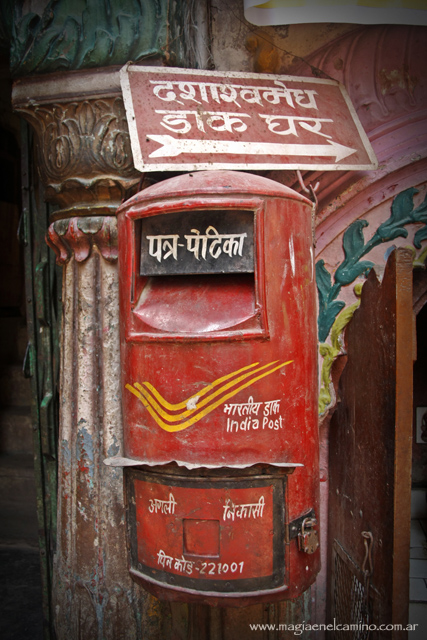 दशाश्वमेध
डाक घर
पत्र-पेटिका
भारतीय डाक
India Post
अगली निकासी
पिन कोड-221001
www.magiaenelcamino.com.ar